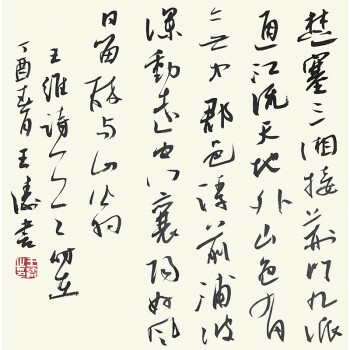 楚塞三湘接荆门九派
通江流天地外山色有
无中郡邑浮前浦波
澜動远空襄陽好风
日留醉与山翁
王维诗一首
丁酉春月王書